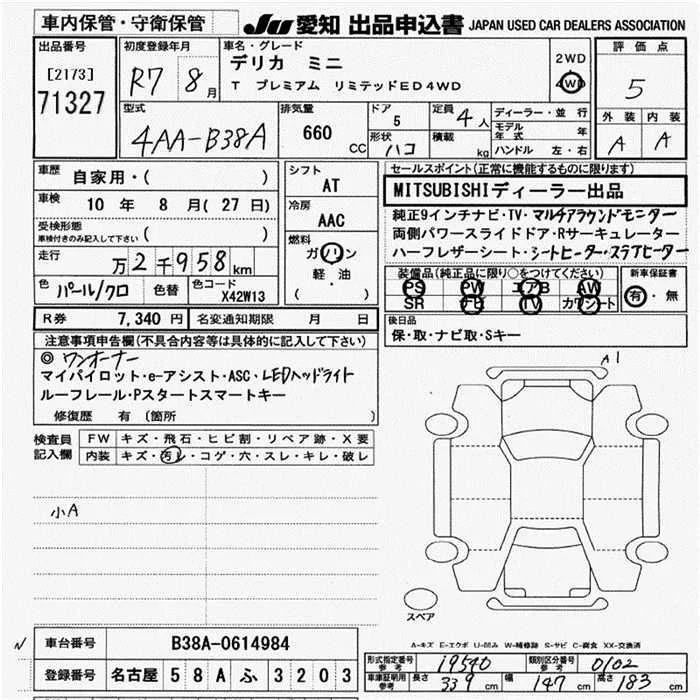 車内保管・守衛保管 JU 愛知 出品申込書 JAPAN USED CAR DEALERS ASSOCIATION
出品番号 [2173] 71327
初度登録年月 R7 8月
車名・グレード デリカ ミニ
T プレミアム リミテッドED4WD
2WD 4WD
評価点 5
外装 A 内装 A
型式 4AA-B38A
排気量 660 CC
ドア 5
形状 ハコ
定員 4人
積載 kg
ディーラー・並行
モデル年式 年
ハンドル 左・右
車歴 自家用・( )
車検 10年 8月(27日)
受検形態 車検付きのみ記入して下さい ( )
走行 万2千958km
色 パール/クロ 色替 色コード X42W13
シフト AT
冷房 AAC
燃料 ガソリン・軽・油 ( )
R券 7,340円 名変通知期限 月 日
セールスポイント(正常に機能するものに限ります)
MITSUBISHIディーラー出品
純正9インチナビ・TV・マルチアラウンドモニター
両側パワースライドドア・Rサーキュレーター
ハーフレザーシート・シートヒーター・ステアヒーター
装備品(純正品に限り○をつけてください)
PS PW エアB AW
SR ナビ TV カワシート
新車保証書 有・無
後日品
保・取・ナビ取・Sキー
注意事項申告欄(不具合内容等は具体的に記入して下さい)
◎ワンオーナー
マイパイロット・e-アシスト・ASC・LEDヘッドライト
ルーフレール・Pスタートスマートキー
修復歴 有 〔箇所 〕
検査員記入欄
FW キズ・飛石・ヒビ割・リペア跡・X要
内装 キズ・汚レ・コゲ・穴・スレ・キレ・破レ
小A
A1
スペア
A-キズ E-エクボ U-凹み W-補修跡 S-サビ C-腐食 XX-交換済
車台番号 B38A-0614984
登録番号 名古屋 58A ふ 3203
形式指定番号 参考 19540 類別区分番号 参考 0102
車体証明用 参考 長さ 339cm 幅 147cm 高さ 183cm